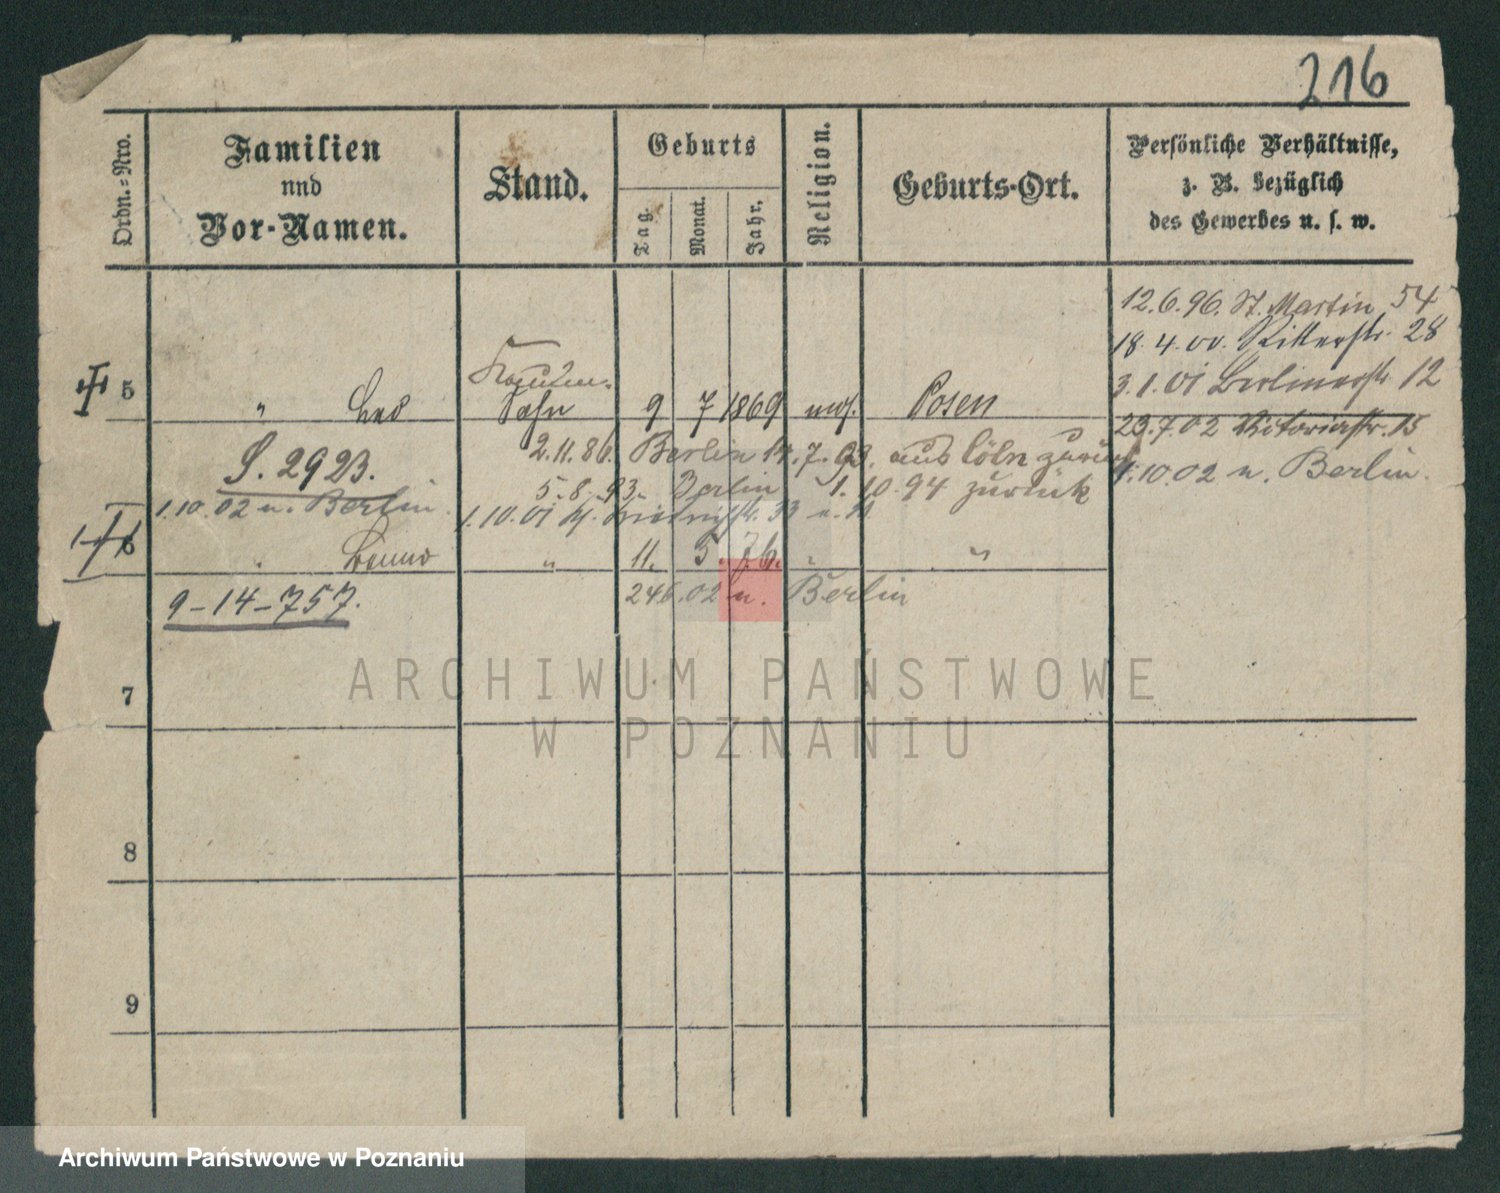 216
Ordn.=Nro.
Familien
und
Vor-Namen.
Stand.
Geburts
Tag.
Monat.
Jahr.
Religion.
Geburts-Ort.
Persönliche Verhältnisse,
z. B. bezüglich
des Gewerbes u. s. w.
12.6.96. St. Martin 54
18.4.00. Ritterstr. 28
3.1.01 Berlinerstr. 12
23.7.02 Viktoriastr. 15
1.10.02 n. Berlin.
5 " Leo Sohn 9 7 1869 mos. Posen
S. 2923.
2.11.86. Berlin 14.7.93. aus Cöln zurück
5.8.93. Berlin 1.10.94 zurück
1.10.02 n. Berlin.
1.10.01
6 " Benno " 11. 5. 76. " "
24.6.02 n. Berlin
9-14-757.
7
8
9
ARCHIWUM PAŃSTWOWE
W POZNANIU
Archiwum Państwowe w Poznaniu